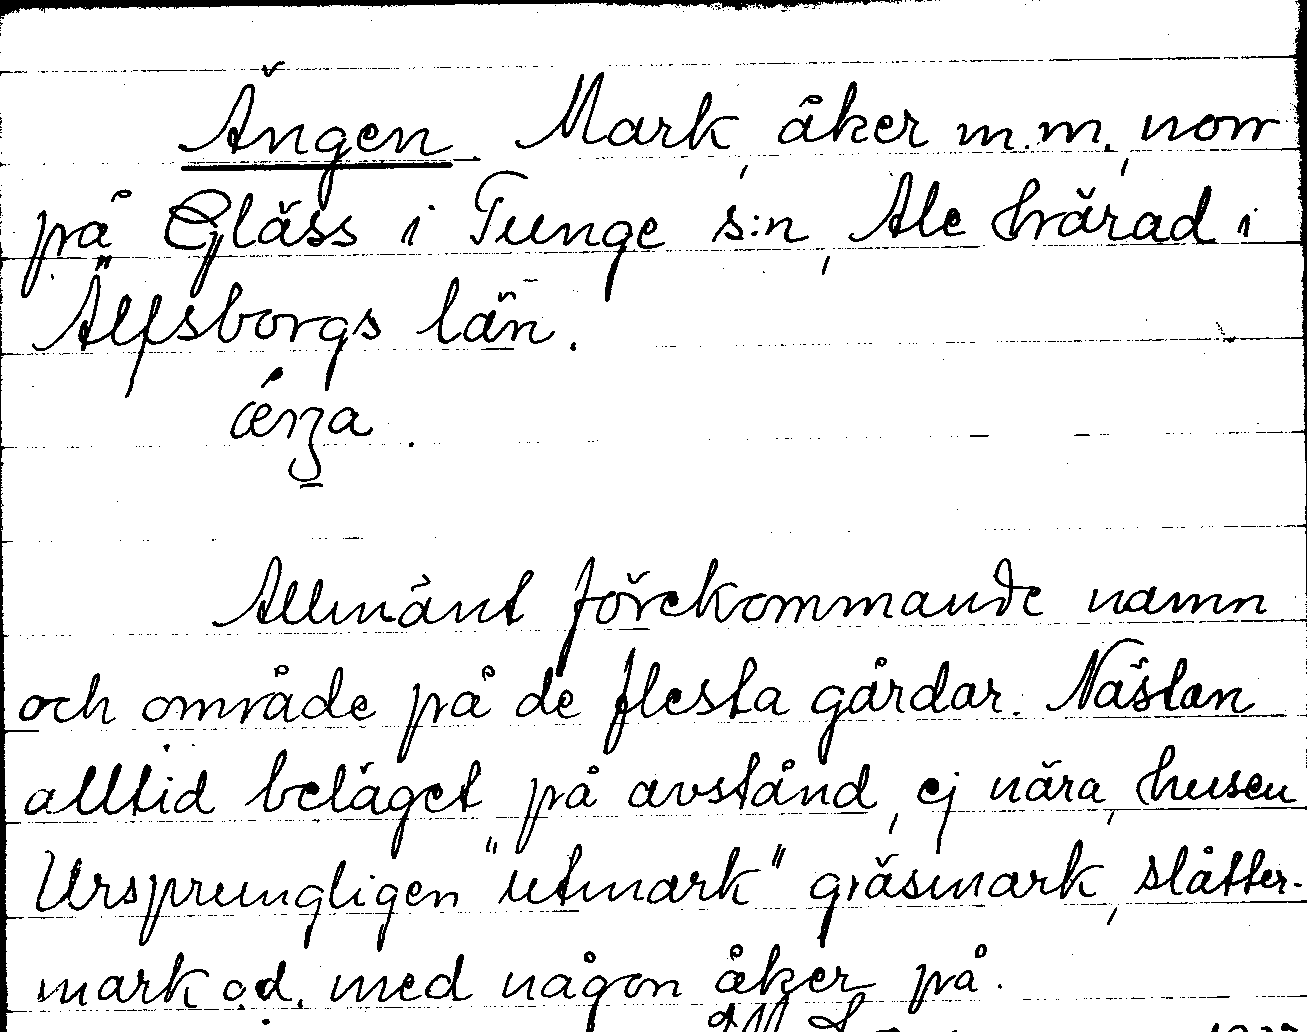 Ängen. Mark, åker m.m., norr
på Gläss i Tunge s:n, Ale härad i
Älfsborgs län.
Allmänt förekommande namn
och område på de flesta gårdar. Nästan
alltid beläget på avstånd, ej nära husen
Ursprungligen "utmark" gräsmark, slåtter-
mark o.d. med någon åker på.